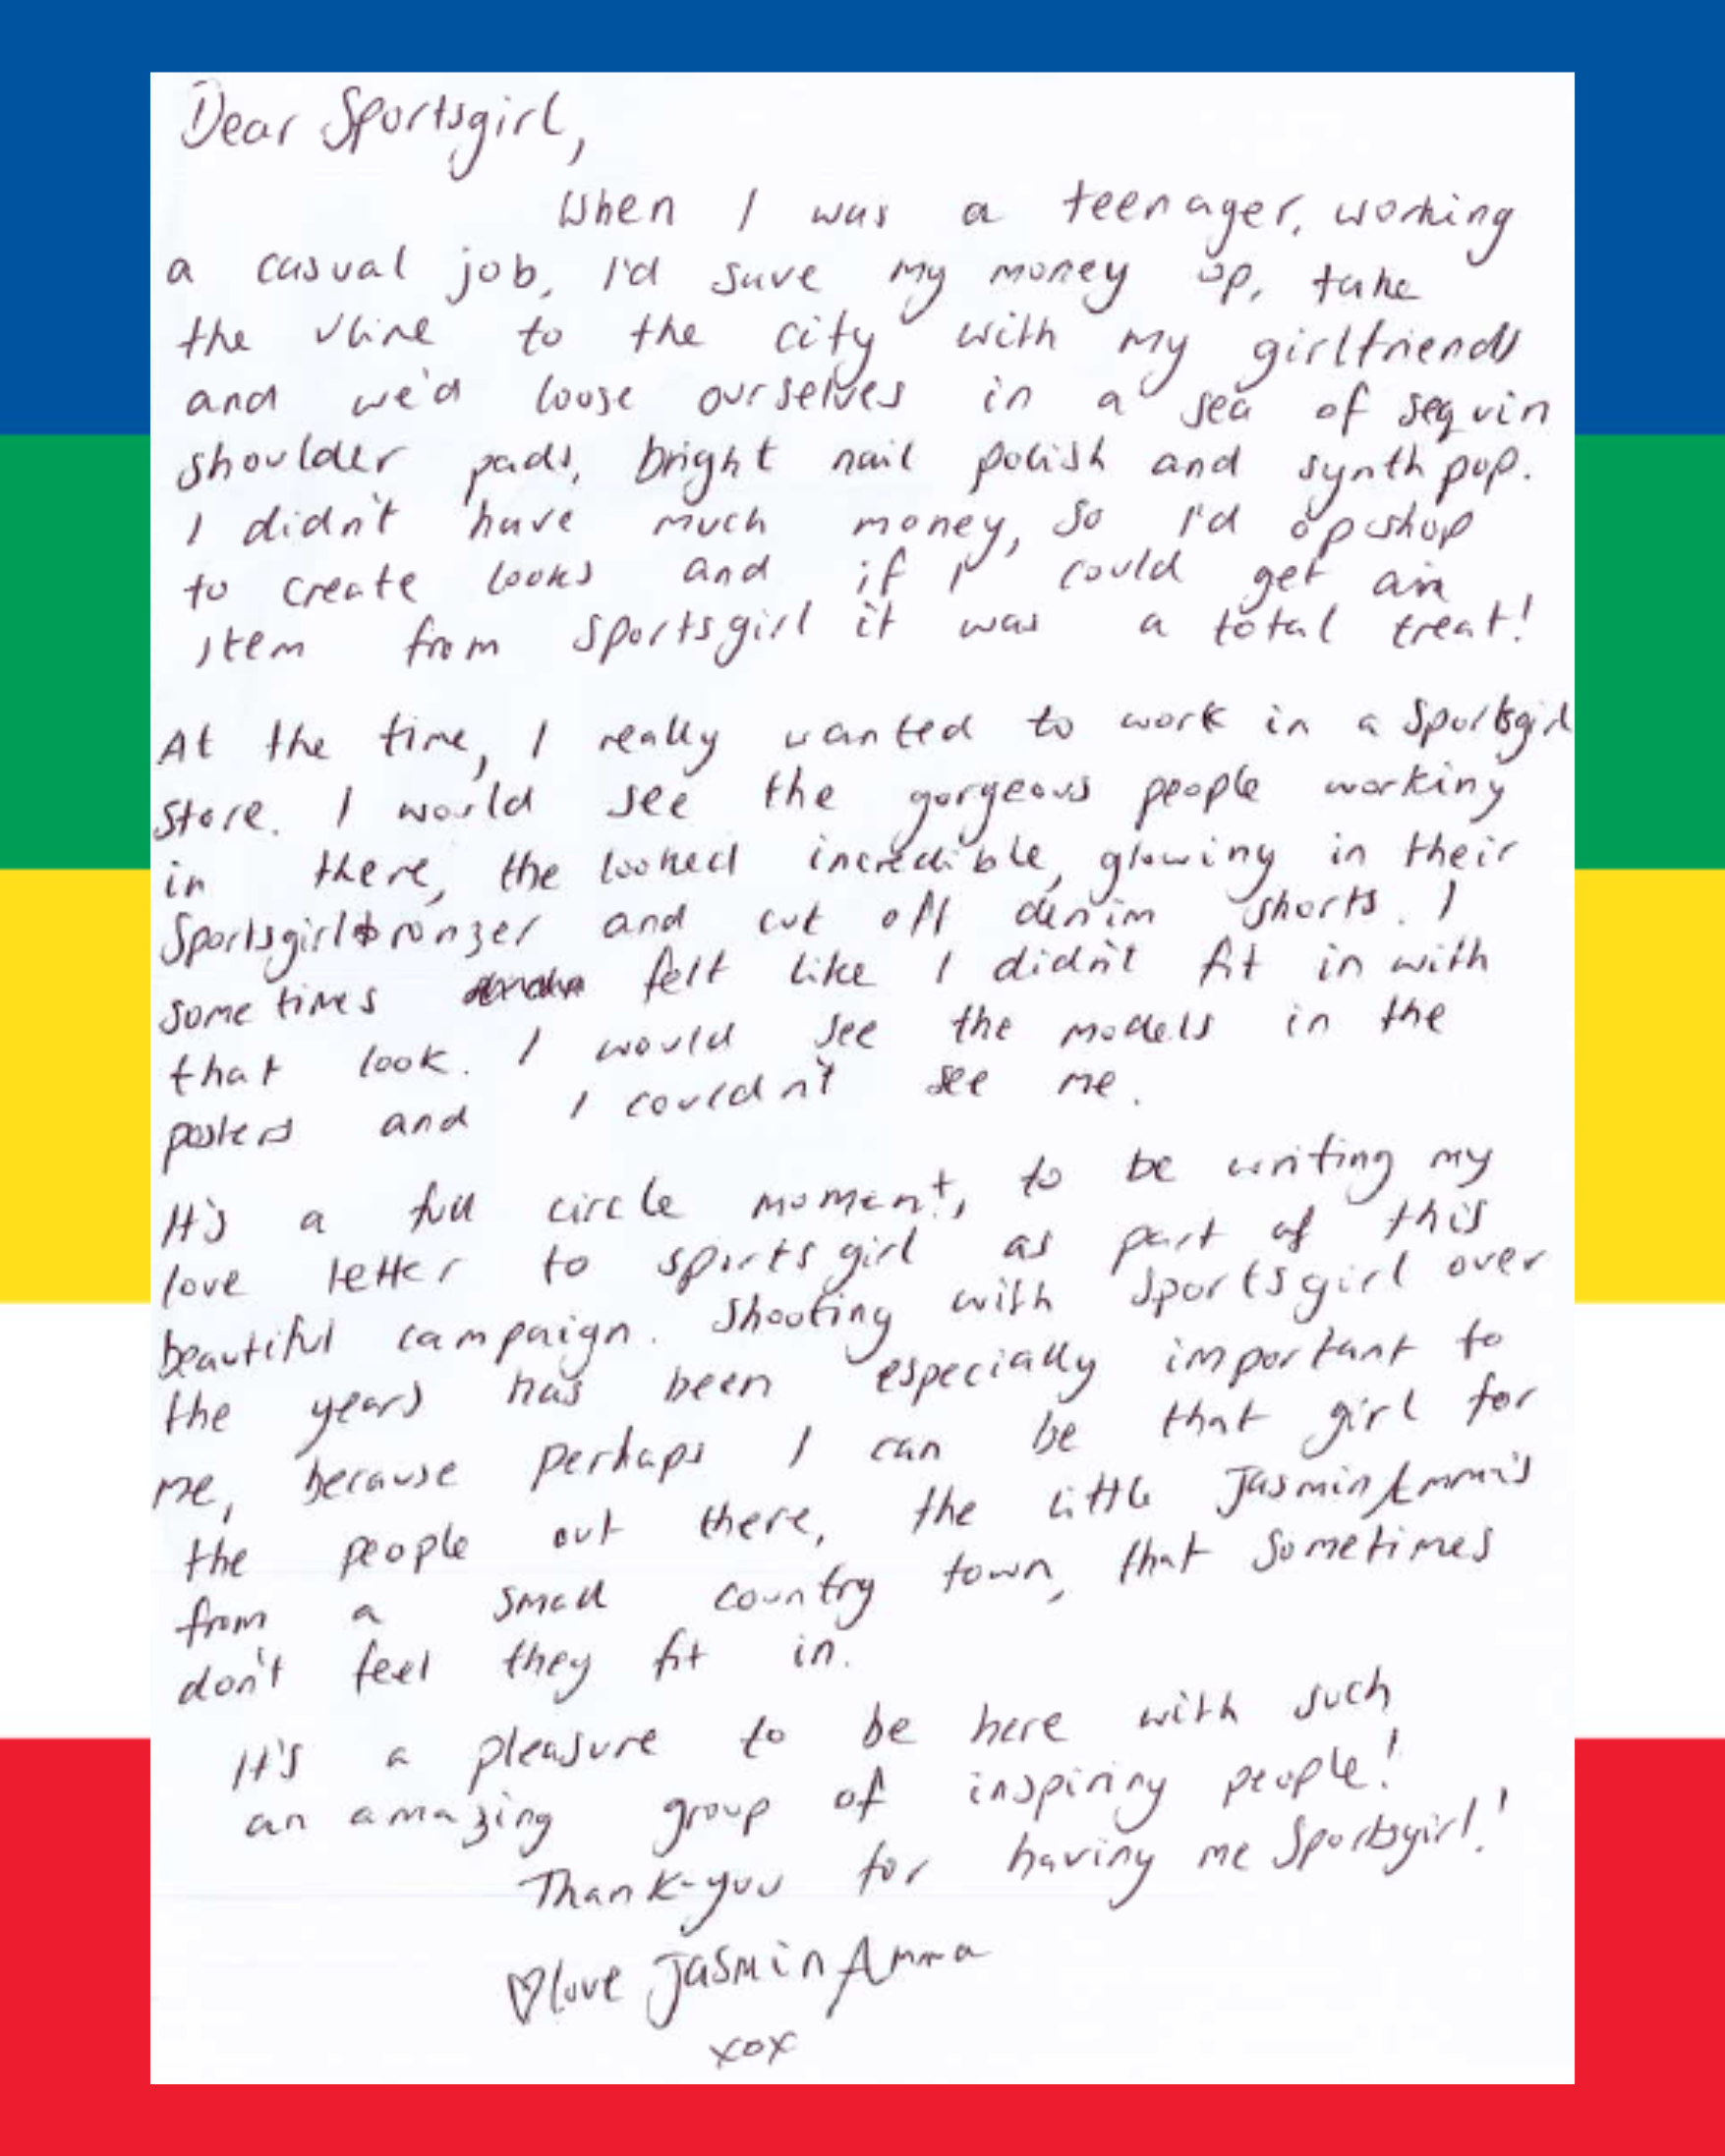 Dear Sportsgirl,
When I was a teenager, working
a casual job, I'd save my money up, take
the vline to the city with my girlfriends
and we'd loose ourselves in a sea of sequin
shoulder pads, bright nail polish and synth pop.
I didn't have much money, so I'd opshop
to create looks and if I could get an
item from Sportsgirl it was a total treat!
At the time, I really wanted to work in a Sportsgirl
store. I would see the gorgeous people working
in there, the looked incredible, glowing in their
Sportsgirl bronzer and cut off denim shorts. I
sometimes felt like I didn't fit in with
that look. I would see the models in the
posters and I couldn't see me.
It's a full circle moment, to be writing my
love letter to sportsgirl as part of this
beautiful campaign. Shooting with Sportsgirl over
the years has been especially important to
me, because perhaps I can be that girl for
the people out there, the little Jasmin Amma's
from a small country town, that sometimes
don't feel they fit in.
It's a pleasure to be here with such
an amazing group of inspiring people!
Thank-you for having me Sportsgirl!
♡love Jasmin Amma
xox